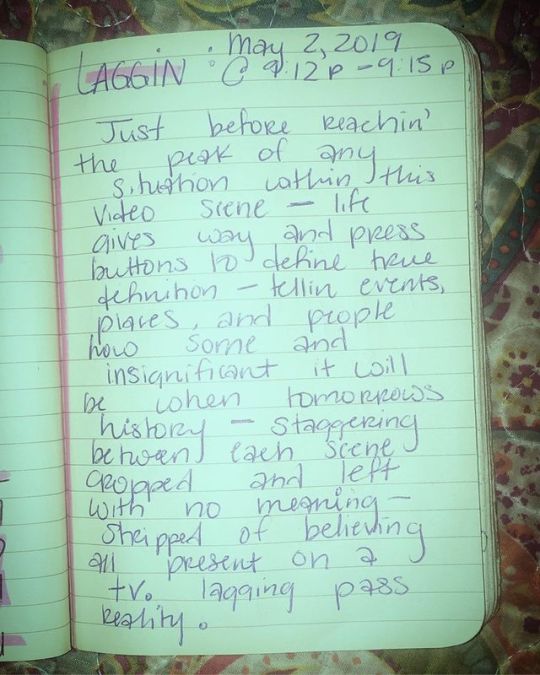 : May 2, 2019
LAGGIN : @ 9:12 p - 9:15 p
Just before reachin'
the peak of any
situation within this
video scene - life
gives way and press
buttons to define true
definition - tellin events,
places, and people
how some and
insignificant it will
be when tomorrows
history - staggering
between each scene
cropped and left
with no meaning -
stripped of believing
all present on a
tv. lagging pass
reality.